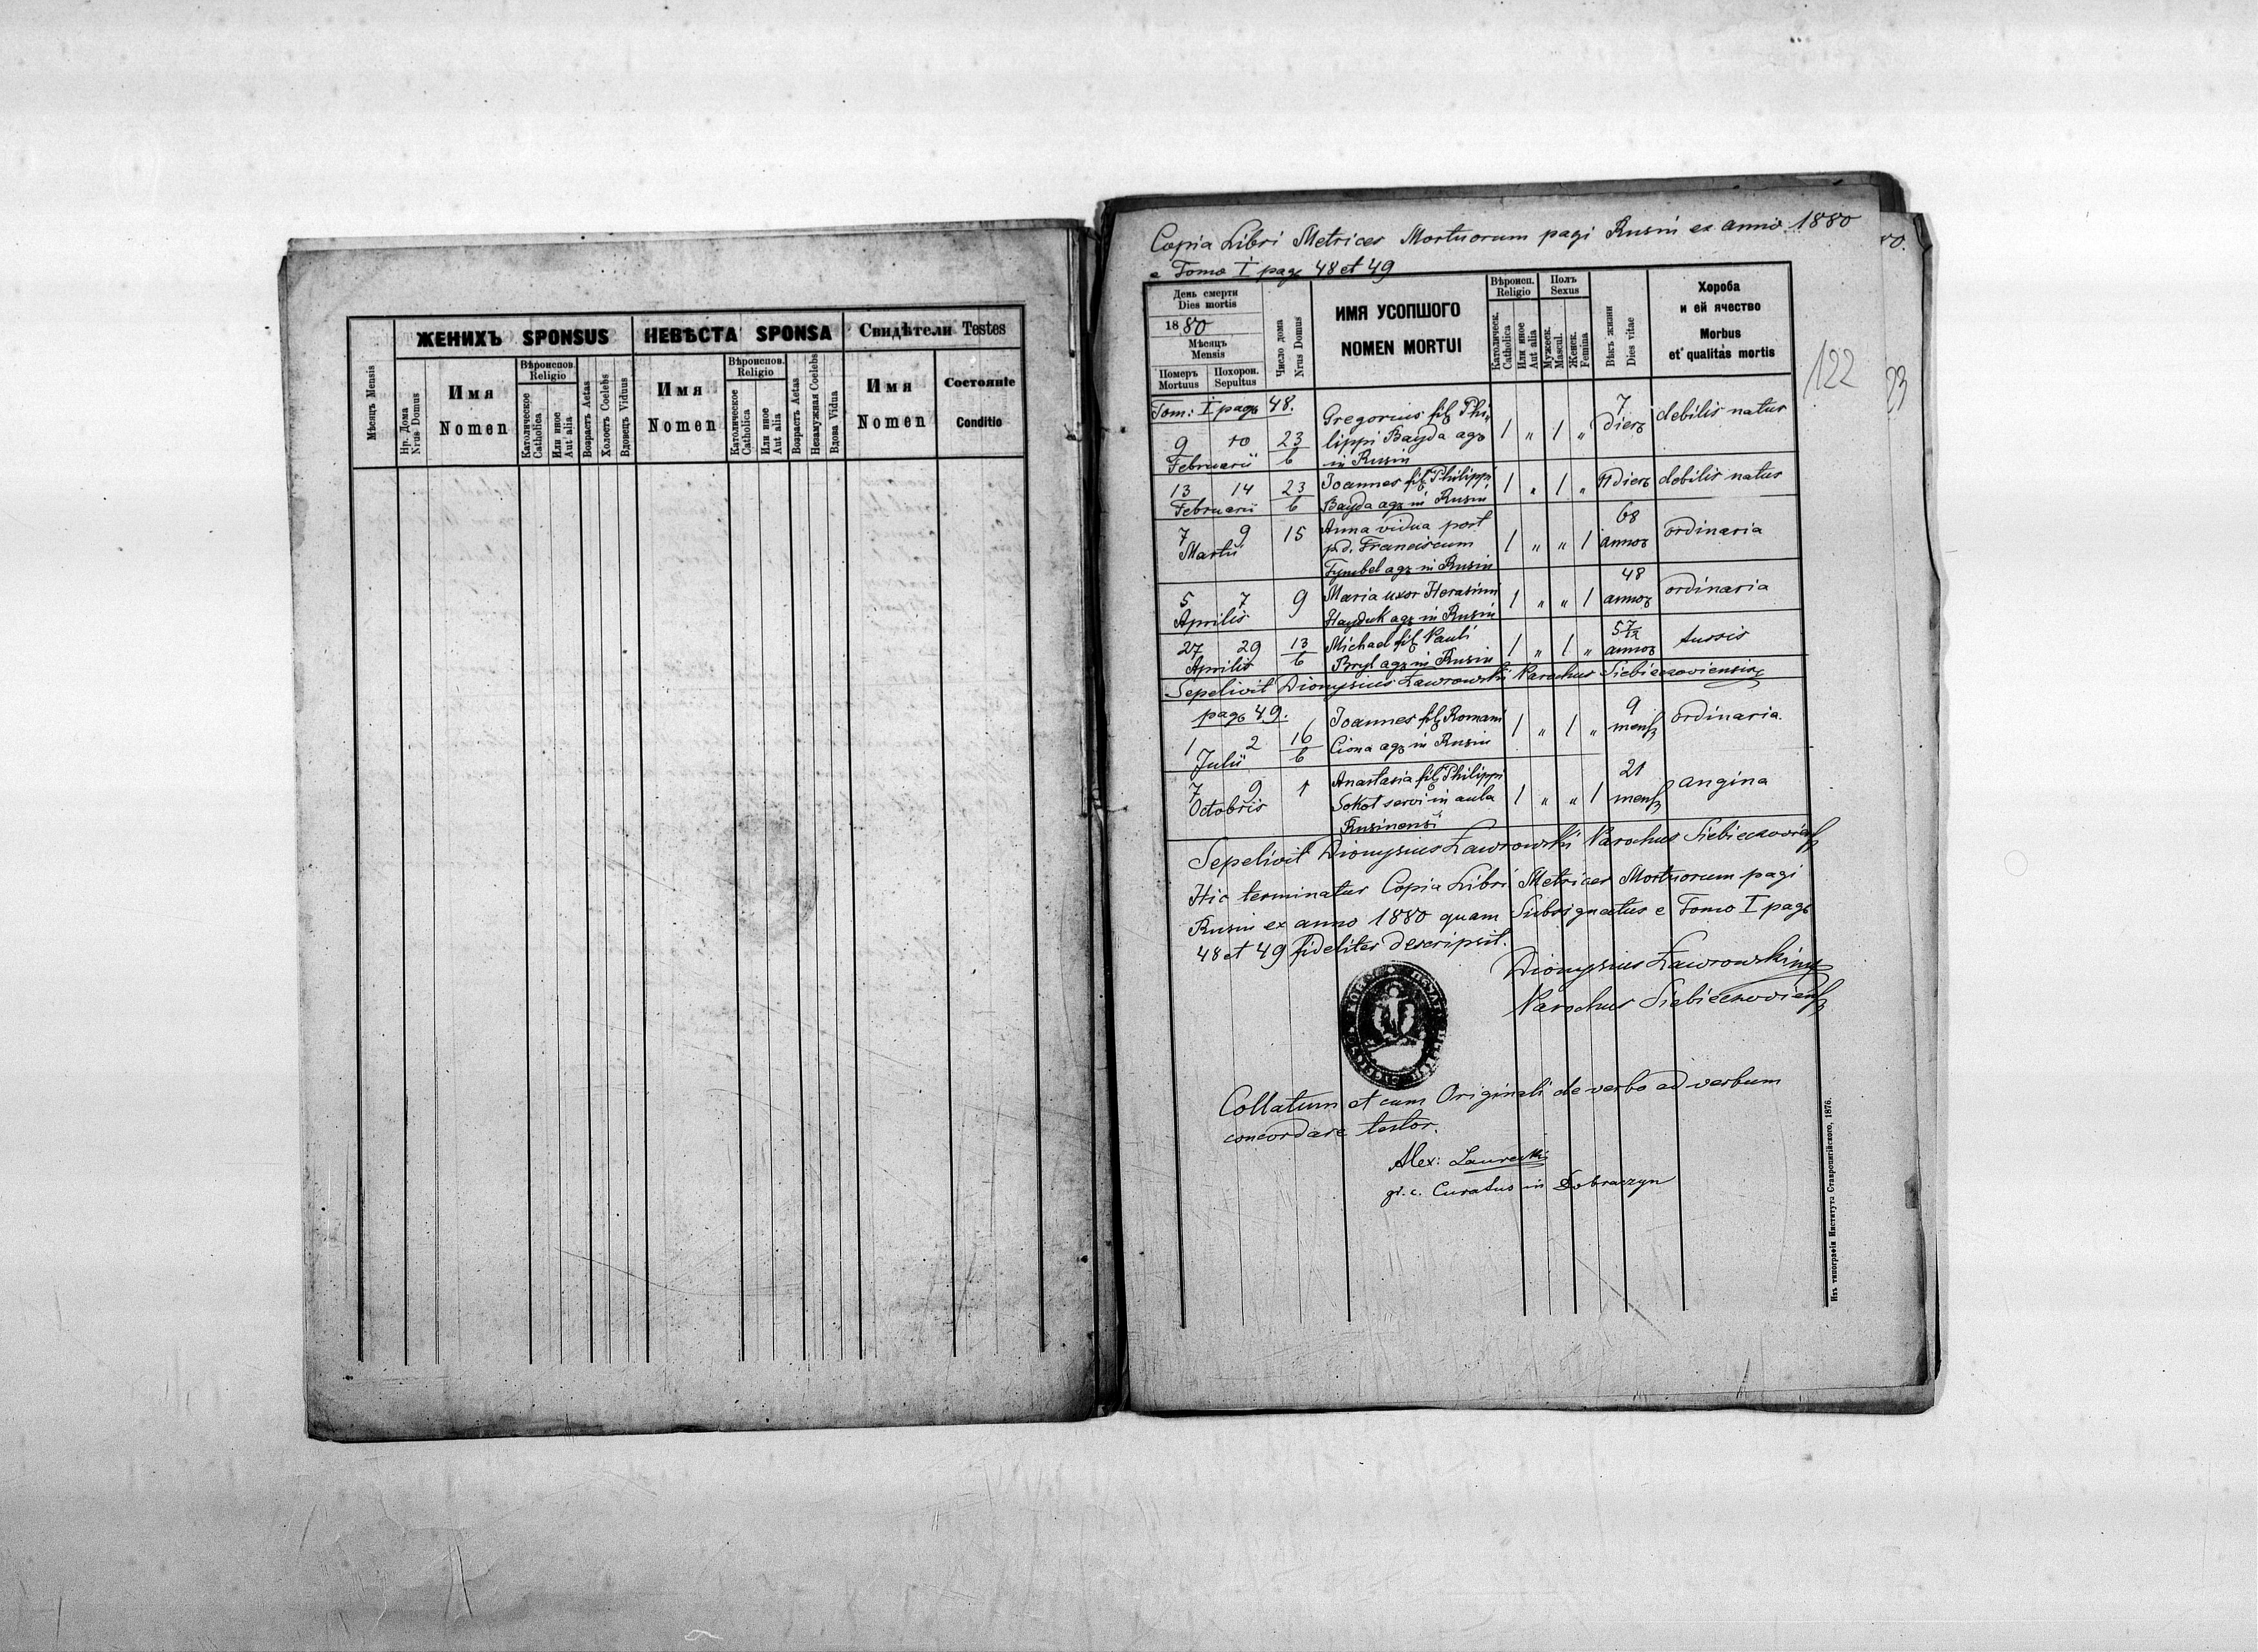 ЖЕНИХЪ SPONSUS
НЕВѢСТА SPONSA
Свидѣтели Testes
Мѣсяць Mensis
Нр. Дома
Nrus Domus
Имя
Nomen
Вѣроиспов.
Religio
Католическое
Catholica
Или иное
Aut alia
Возрастъ Aetas
Холостъ Coelebs
Вдовець Viduus
Имя
Nomen
Вѣроиспов.
Religio
Католическое
Catholica
Или иное
Aut alia
Возрастъ Aetas
Незамужная Coelebs
Вдова Vidua
Имя
Nomen
Состояніе
Conditio
Copia Libri Metrices Mortuorum pagi Rusin ex anno 1880
e Tomo I pag 48 et 49
День смерти
Dies mortis
1880
Мѣсяць
Mensis
Померъ
Mortuus
Похорон.
Sepultus
Число дома
Nrus Domus
ИМЯ УСОПШОГО
NOMEN MORTUI
Вѣроисп.
Religio
Католическ.
Catholica
Или иное
Aut alia
Полъ
Sexus
Мужеск.
Mascul.
Женск.
Femina
Вѣкъ жизни
Dies vitae
Хороба
и ей ячество
Morbus
et qualitas mortis
122
23
Tom: I pag 48.
9 10 23/b Gregorius fil Phi-
lippi Bayda agr
in Rusin 1 " 1 " 7 dier debilis natus
Februarii
13 14 23/b Joannes fil Philippi
Bayda agr in Rusin 1 " 1 " 11 dier debilis natus
Februarii
7 9 15 Anna vidua post
p.d. Franciscum
Fymbel agr in Rusin 1 " " 1 68 annor ordinaria
Martii
5 7 9 Maria uxor Herasimi
Hayduk agr in Rusin 1 " " 1 48 annor ordinaria
Aprilis
27 29 13/b Michael fil Pauli
Bryl agr in Rusin 1 " 1 " 5 7/12 annor tussis
Aprilis
Sepelivit Dionysius Ławrowski Parochus Siebieczoviensis
pag 49.
1 2 16/b Joannes fil Romani
Ciona agr in Rusin 1 " 1 " 9 mens ordinaria.
Julii
7 9 1 Anastasia fil Philippi
Sokoł servi in aula
Rusinensi 1 " " 1 21 mens angina
Octobris
Sepelivit Dionysius Ławrowski Parochus Siebieczoviens
Hic terminatur Copia Libri Metrices Mortuorum pagi
Rusin ex anno 1880 quam Subsignatus e Tomo I pag
48 et 49 fideliter descripsit.
Dionysius Ławrowski
Parochus Siebieczoviens
Collatum et cum Originali de verbo ad verbum
concordare testor.
Alex: Laurecki
gr. c. Curatus in Dobraczyn
Изъ типографіи Института Ставропигійского, 1876.